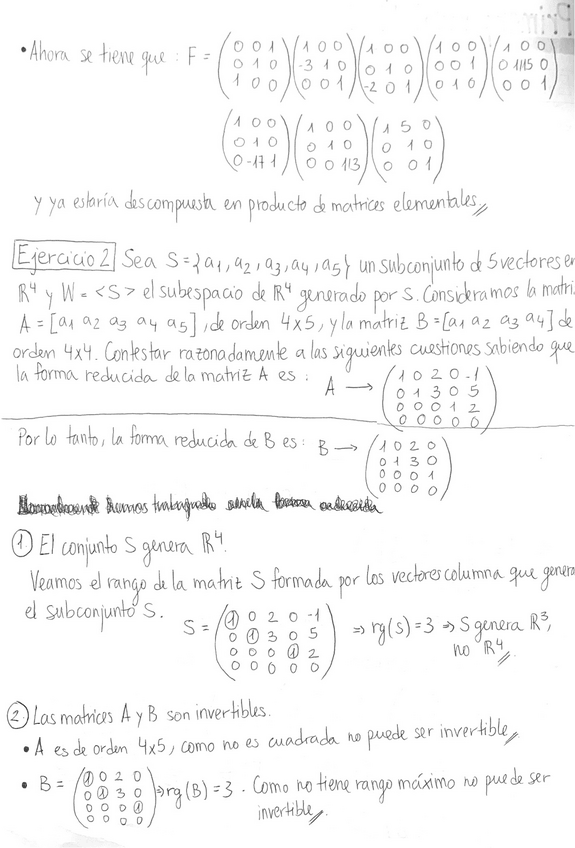 • Ahora se tiene que : F = (0 0 1 / 0 1 0 / 1 0 0) (1 0 0 / -3 1 0 / 0 0 1) (1 0 0 / 0 1 0 / -2 0 1) (1 0 0 / 0 0 1 / 0 1 0) (1 0 0 / 0 1/15 0 / 0 0 1)
(1 0 0 / 0 1 0 / 0 -17 1) (1 0 0 / 0 1 0 / 0 0 1/3) (1 5 0 / 0 1 0 / 0 0 1)
y ya estaría descompuesta en producto de matrices elementales
Ejercicio 2 Sea S = {a1, a2, a3, a4, a5} un subconjunto de 5 vectores en
R⁴ y W = <S> el subespacio de R⁴ generado por S. Consideramos la matri
A = [a1 a2 a3 a4 a5], de orden 4x5, y la matriz B = [a1 a2 a3 a4] de
orden 4x4. Contestar razonadamente a las siguientes cuestiones sabiendo que
la forma reducida de la matriz A es : A → (1 0 2 0 -1 / 0 1 3 0 5 / 0 0 0 1 2 / 0 0 0 0 0)
Por lo tanto, la forma reducida de B es : B → (1 0 2 0 / 0 1 3 0 / 0 0 0 1 / 0 0 0 0)
hemos trabajado
1. El conjunto S genera R⁴.
Veamos el rango de la matriz S formada por los vectores columna que genera
el subconjunto S. S = (1 0 2 0 -1 / 0 1 3 0 5 / 0 0 0 1 2 / 0 0 0 0 0) ⇒ rg(S) = 3 ⇒ S genera R³,
no R⁴
2. Las matrices A y B son invertibles.
• A es de orden 4x5, como no es cuadrada no puede ser invertible
• B = (1 0 2 0 / 0 1 3 0 / 0 0 0 1 / 0 0 0 0) ⇒ rg(B) = 3. Como no tiene rango máximo no puede ser
invertible